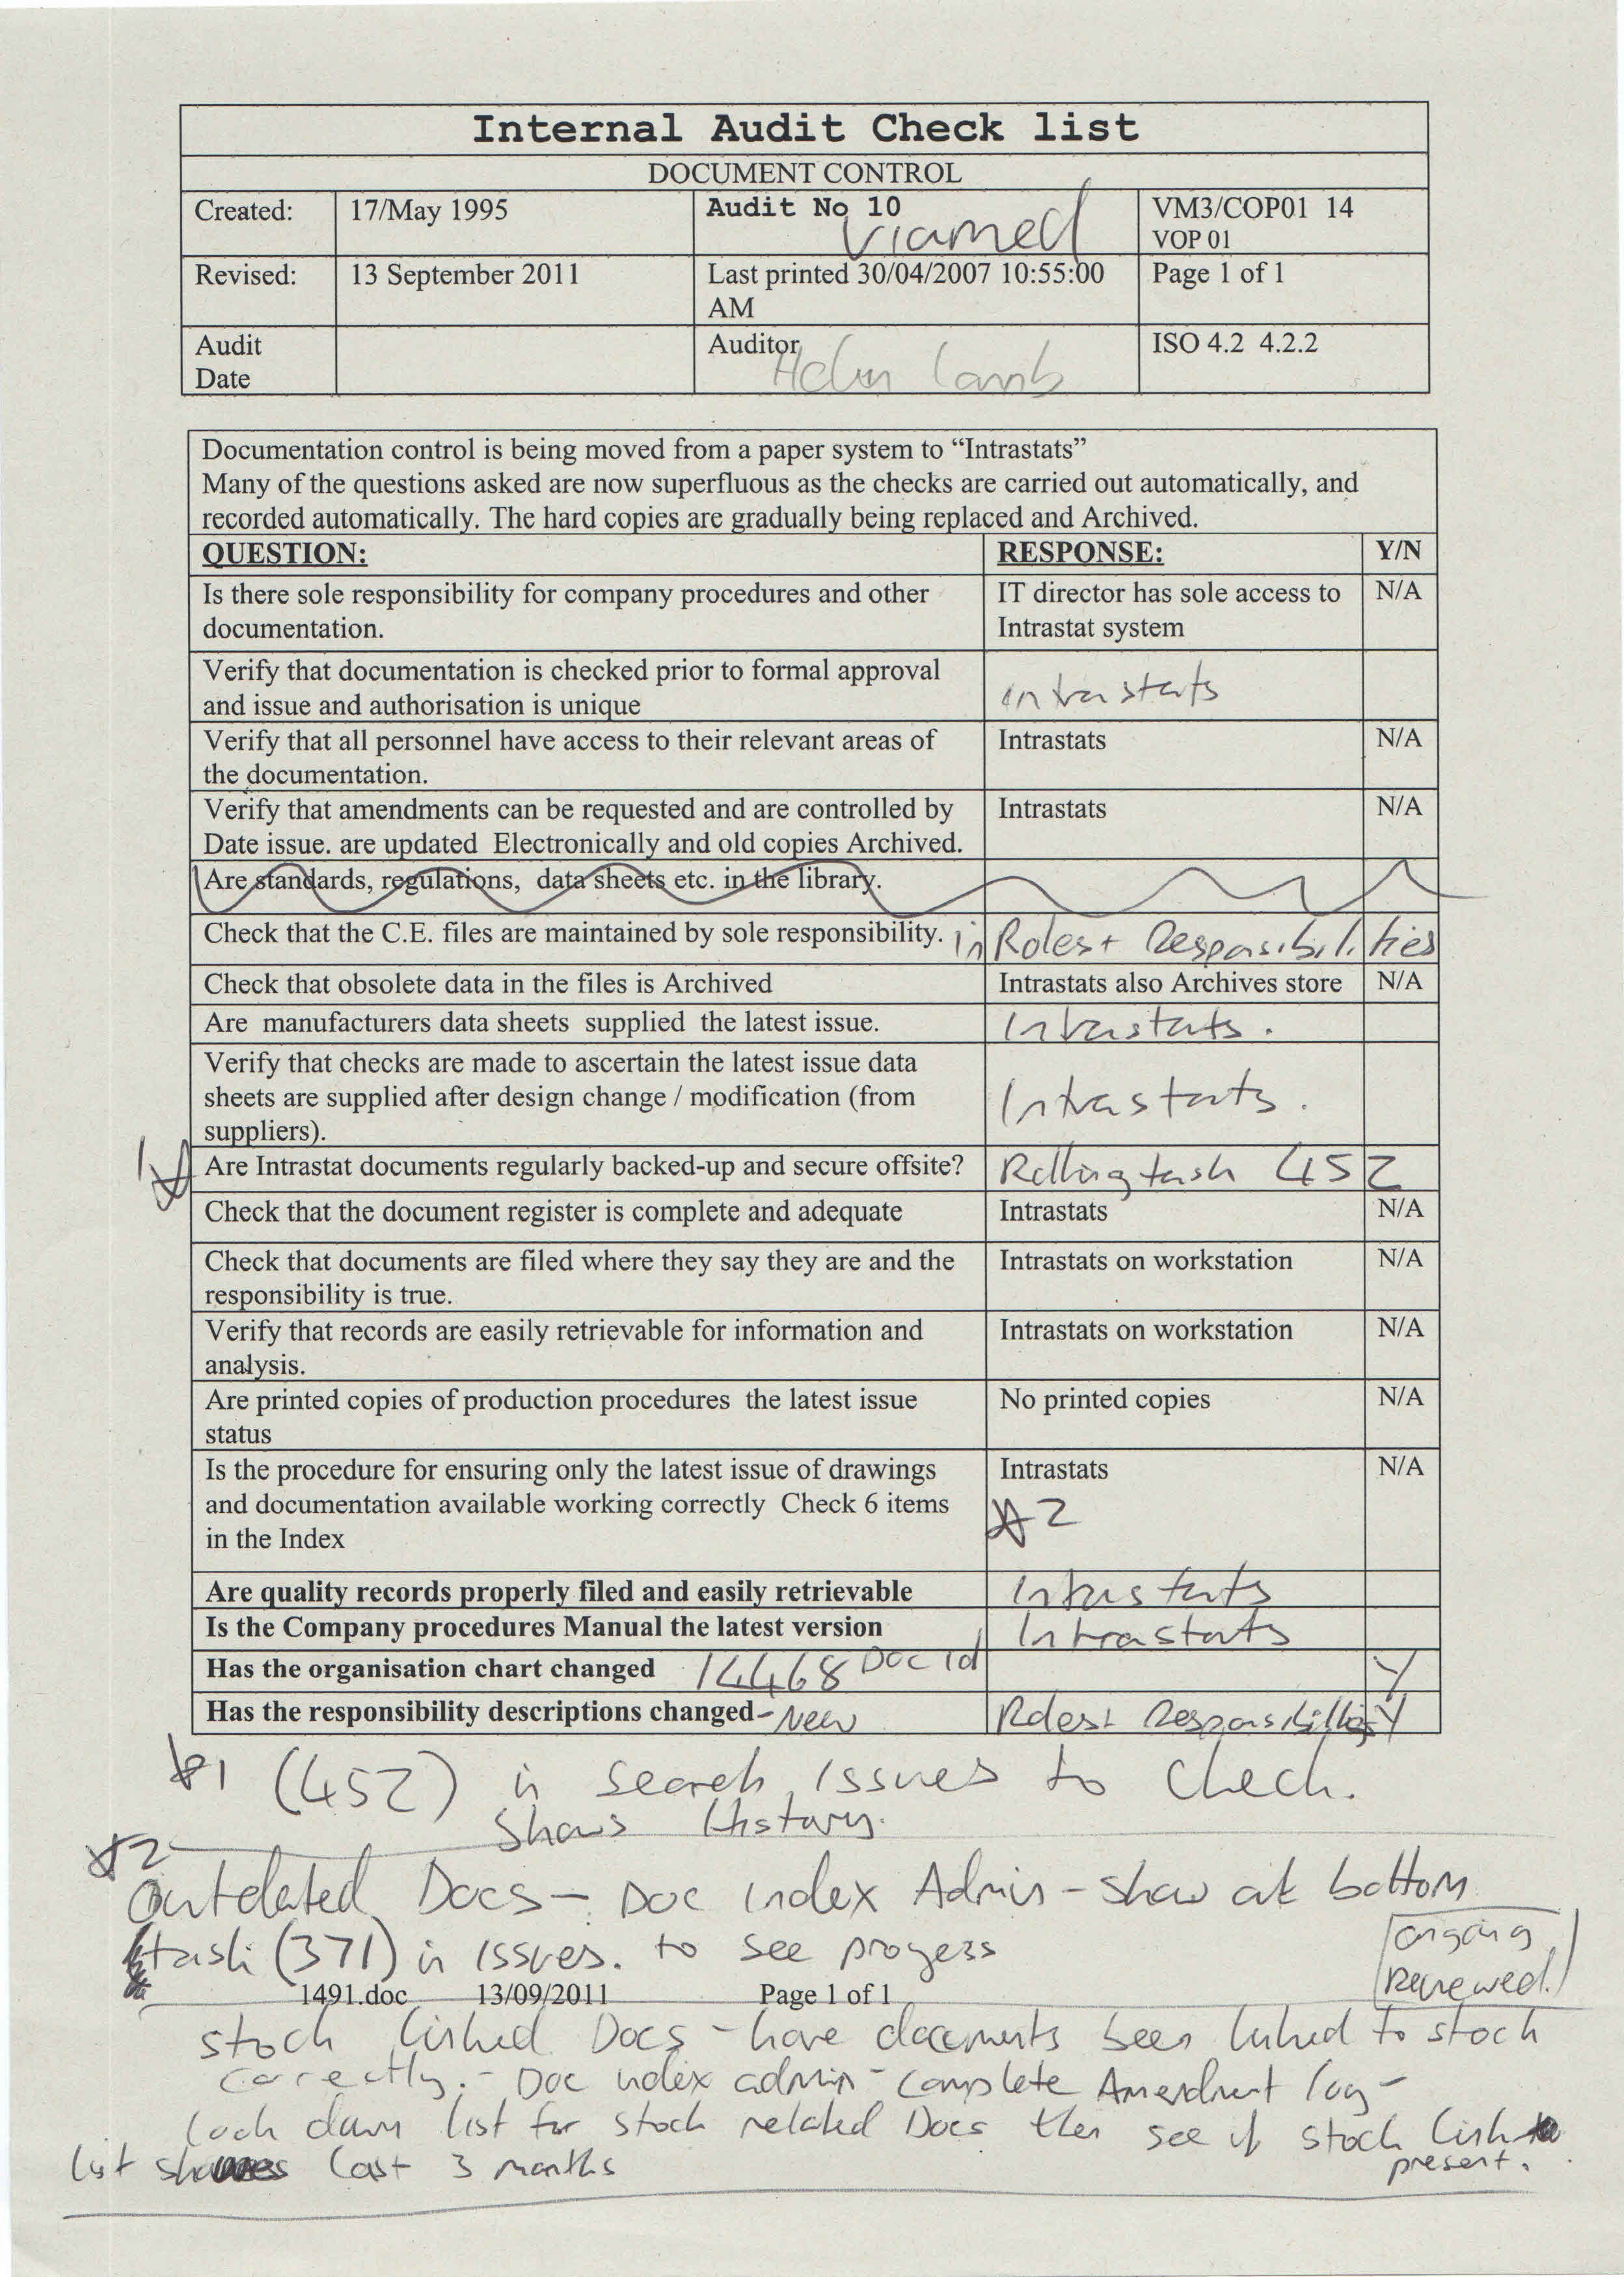 Internal Audit Check list
DOCUMENT CONTROL
Created: 17/May 1995 Audit No 10 VM3/COP01 14
Viamed VOP 01
Revised: 13 September 2011 Last printed 30/04/2007 10:55:00 Page 1 of 1
AM
Audit Auditor ISO 4.2 4.2.2
Date Helen Lamb
Documentation control is being moved from a paper system to “Intrastats”
Many of the questions asked are now superfluous as the checks are carried out automatically, and
recorded automatically. The hard copies are gradually being replaced and Archived.
QUESTION: RESPONSE: Y/N
Is there sole responsibility for company procedures and other IT director has sole access to N/A
documentation. Intrastat system
Verify that documentation is checked prior to formal approval
and issue and authorisation is unique intrastats
Verify that all personnel have access to their relevant areas of Intrastats N/A
the documentation.
Verify that amendments can be requested and are controlled by Intrastats N/A
Date issue. are updated Electronically and old copies Archived.
Are standards, regulations, data sheets etc. in the library.
Check that the C.E. files are maintained by sole responsibility. in Roles + Responsibilities
Check that obsolete data in the files is Archived Intrastats also Archives store N/A
Are manufacturers data sheets supplied the latest issue. Intrastats.
Verify that checks are made to ascertain the latest issue data
sheets are supplied after design change / modification (from Intrastats.
suppliers).
1 Are Intrastat documents regularly backed-up and secure offsite? Rolling task 452
Check that the document register is complete and adequate Intrastats N/A
Check that documents are filed where they say they are and the Intrastats on workstation N/A
responsibility is true.
Verify that records are easily retrievable for information and Intrastats on workstation N/A
analysis.
Are printed copies of production procedures the latest issue No printed copies N/A
status
Is the procedure for ensuring only the latest issue of drawings Intrastats N/A
and documentation available working correctly Check 6 items *2
in the Index
Are quality records properly filed and easily retrievable Intrastats
Is the Company procedures Manual the latest version Intrastats
Has the organisation chart changed 14468 Doc id Y
Has the responsibility descriptions changed - New Roles + Responsibilities Y
*1 (452) in search issues to check.
Shows History.
*2
Outdated Docs - Doc index Admin - show at bottom
task (371) in issues. to see progess
ongoing
renewed.
1491.doc 13/09/2011 Page 1 of 1
stock linked Docs - have documents been linked to stock
correctly. - Doc index admin - complete Amendment log -
look down list for stock related Docs then see if stock link
present.
list shows last 3 months